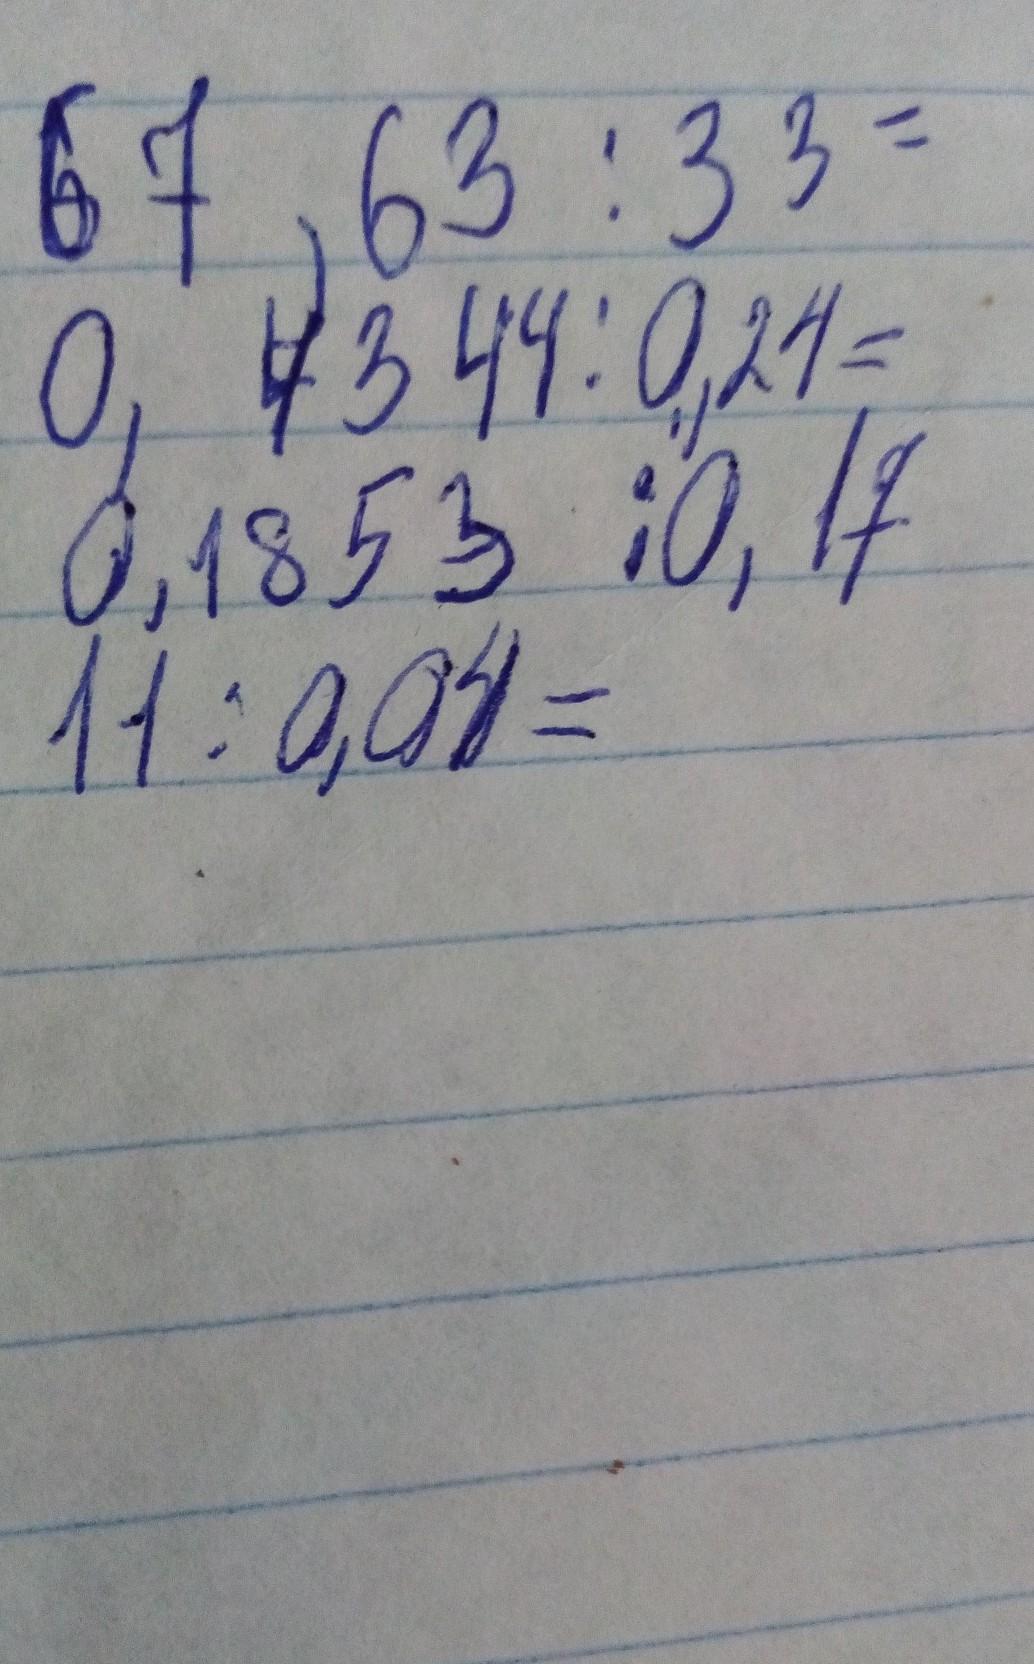 67,63:33=
0,4344:0,24=
0,1853:0,17
11:0,04=